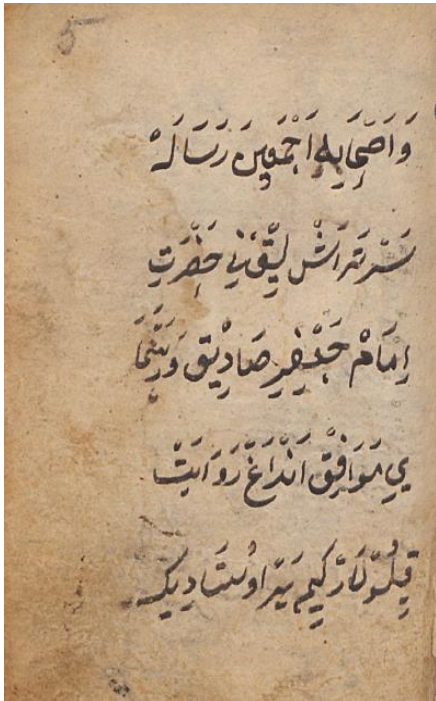 5
وَاَصْحَابِهِ اَجْمَعِينَ رَسَالَهْ
سَرْتَرَاشْ لِيْقْ نِي حَضْرَتِ
اِمَامْ جَعْفَرِ صَادِيْقْ
يِ مَوَافِقْ اَنْدَاغْ رَوَايَتْ
قِيلُوْرْلَارْ كِيمْ اوُسْتَادِيْك